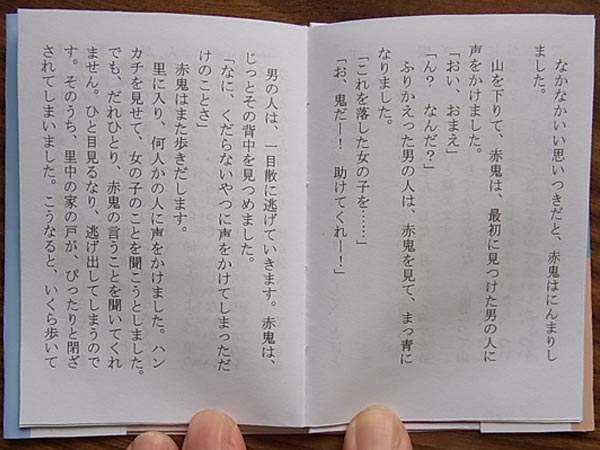 なかなかいい思いつきだと、赤鬼はにんまりし
ました。
山を下りて、赤鬼は、最初に見つけた男の人に
声をかけました。
「おい、おまえ」
「ん？　なんだ？」
ふりかえった男の人は、赤鬼を見て、まっ青に
なりました。
「これを落した女の子を……」
「お、鬼だー！　助けてくれー！」
男の人は、一目散に逃げていきます。赤鬼は、
じっとその背中を見つめました。
「なに、くだらないやつに声をかけてしまっただ
けのことさ」
赤鬼はまた歩きだします。
里に入り、何人かの人に声をかけました。ハン
カチを見せて、女の子のことを聞こうとしました。
でも、だれひとり、赤鬼の言うことを聞いてくれ
ません。ひと目見るなり、逃げ出してしまうので
す。そのうち、里中の家の戸が、ぴったりと閉ざ
されてしまいました。こうなると、いくら歩いて